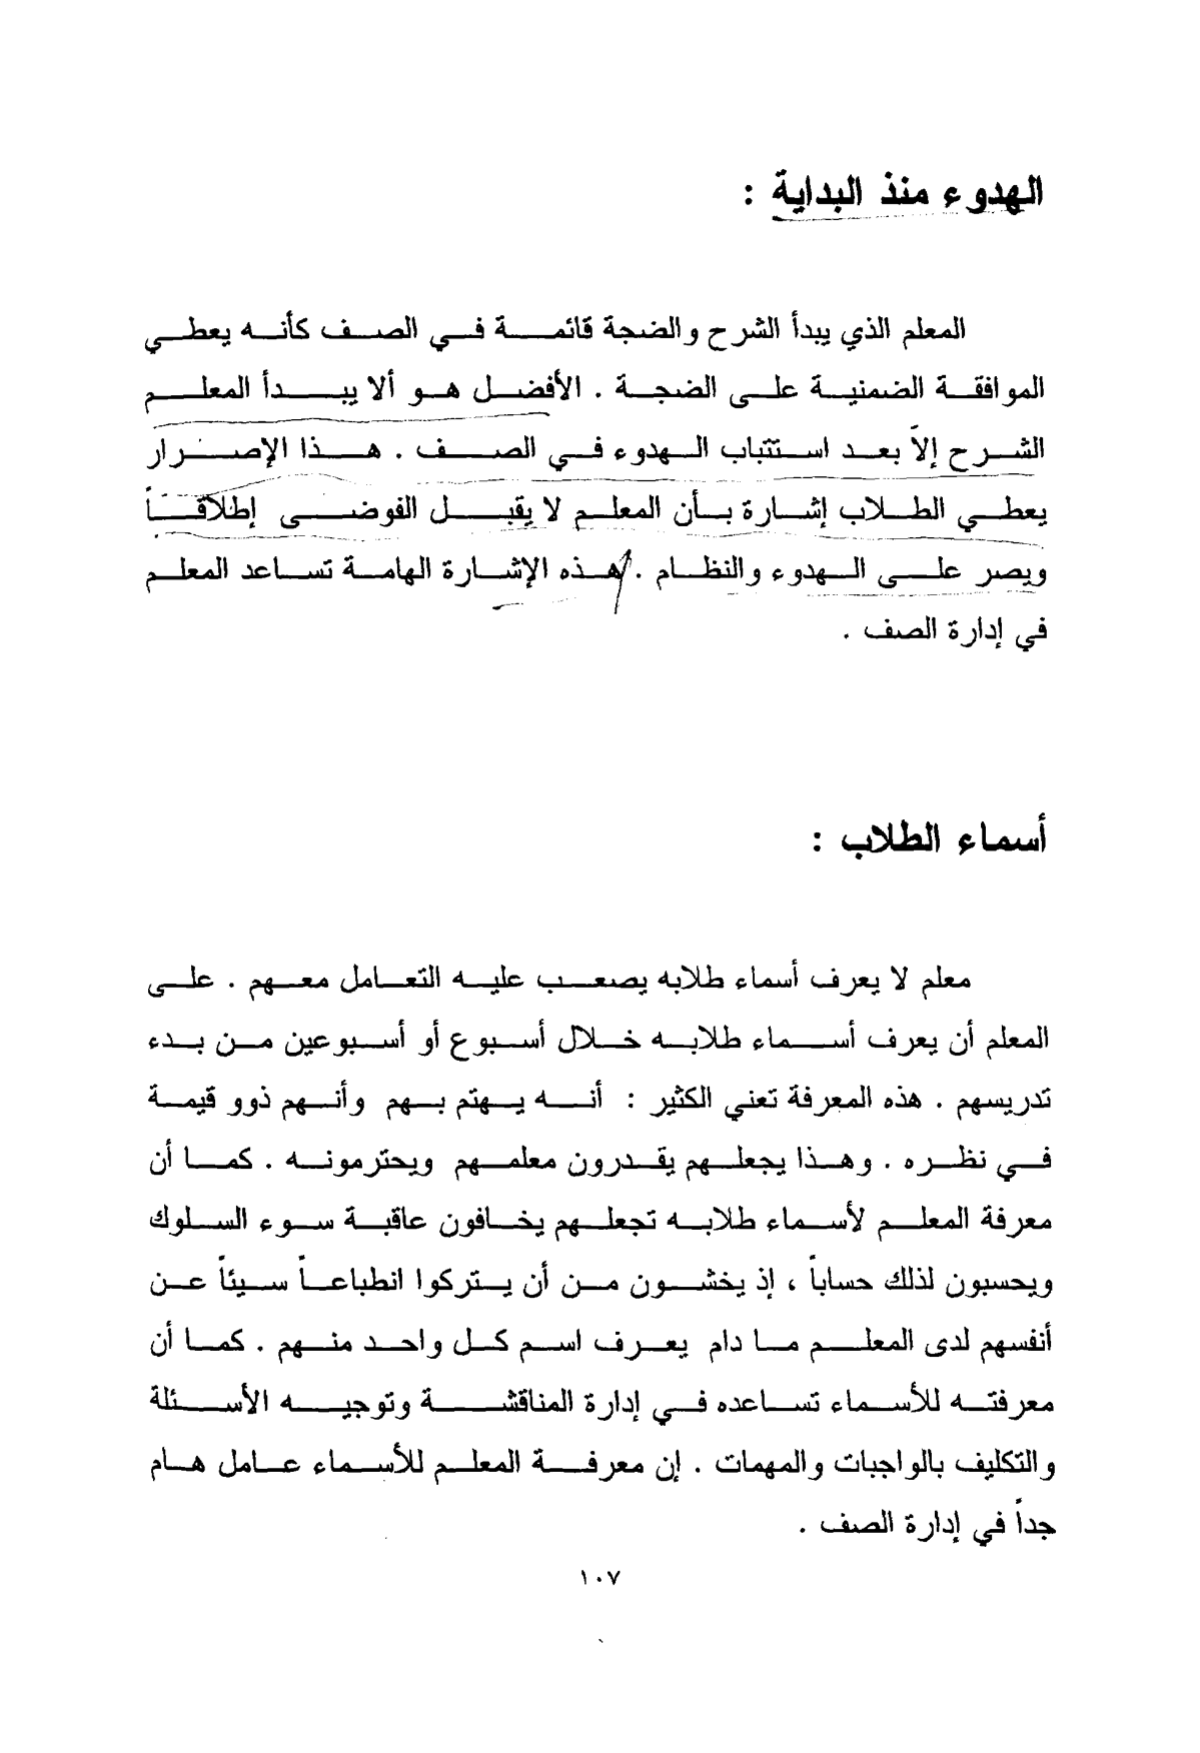 الهدوء منذ البداية :
المعلم الذي يبدأ الشرح والضجة قائمة في الصف كأنه يعطي
الموافقة الضمنية على الضجة . الأفضل هو ألا يبدأ المعلم
الشرح إلاّ بعد استتباب الهدوء في الصف . هذا الإصرار
يعطي الطلاب إشارة بأن المعلم لا يقبل الفوضى إطلاقاً
ويصر على الهدوء والنظام . هذه الإشارة الهامة تساعد المعلم
في إدارة الصف .
أسماء الطلاب :
معلم لا يعرف أسماء طلابه يصعب عليه التعامل معهم . على
المعلم أن يعرف أسماء طلابه خلال أسبوع أو أسبوعين من بدء
تدريسهم . هذه المعرفة تعني الكثير : أنه يهتم بهم وأنهم ذوو قيمة
في نظره . وهذا يجعلهم يقدرون معلمهم ويحترمونه . كما أن
معرفة المعلم لأسماء طلابه تجعلهم يخافون عاقبة سوء السلوك
ويحسبون لذلك حساباً ، إذ يخشون من أن يتركوا انطباعاً سيئاً عن
أنفسهم لدى المعلم ما دام يعرف اسم كل واحد منهم . كما أن
معرفته للأسماء تساعده في إدارة المناقشة وتوجيه الأسئلة
والتكليف بالواجبات والمهمات . إن معرفة المعلم للأسماء عامل هام
جداً في إدارة الصف .
١٠٧